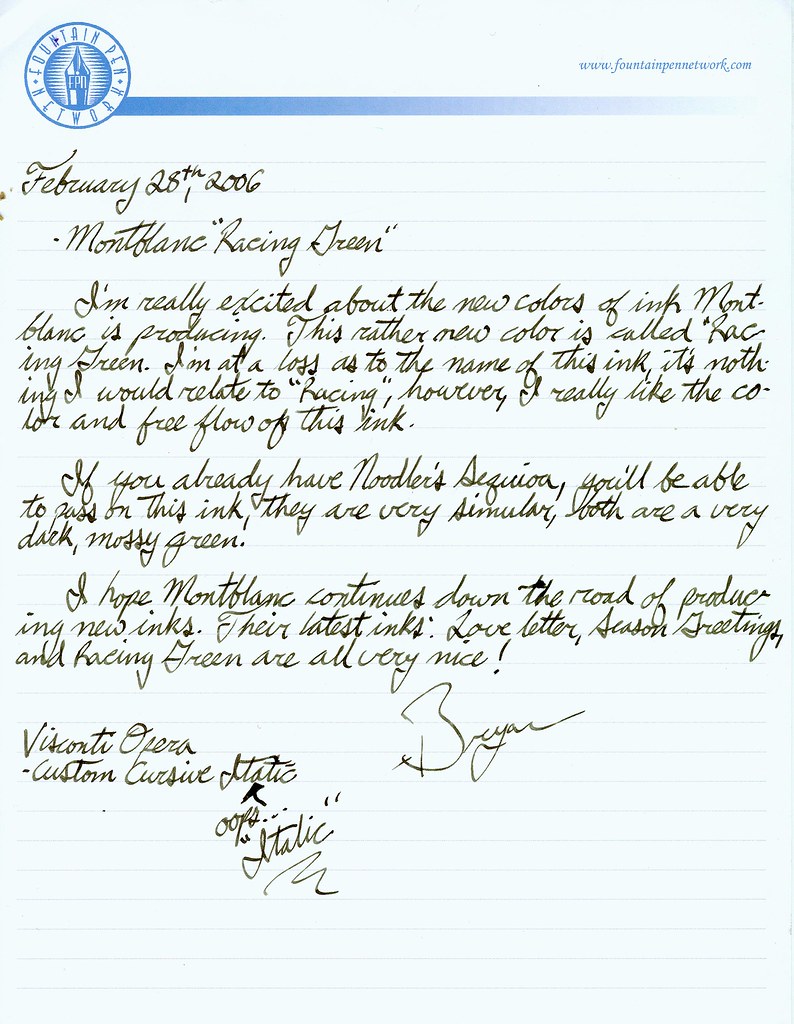 FOUNTAIN PEN
NETWORK
FPN
www.fountainpennetwork.com
February 28th, 2006
- Montblanc "Racing Green"
I'm really excited about the new colors of ink Mont-
blanc is producing. This rather new color is called "Rac-
ing Green. I'm at a loss as to the name of this ink, it's noth-
ing I would relate to "Racing", however, I really like the co-
lor and free flow of this ink.
If you already have Noodler's Sequioa, you'll be able
to pass on this ink, they are very simular, both are a very
dark, mossy green.
I hope Montblanc continues down the road of produc-
ing new inks. Their latest inks: Love letter, Season Greetings,
and Racing Green are all very nice!
Bryan
Visconti Opera
-Custom Cursive Itatic
oops...
"Italic"